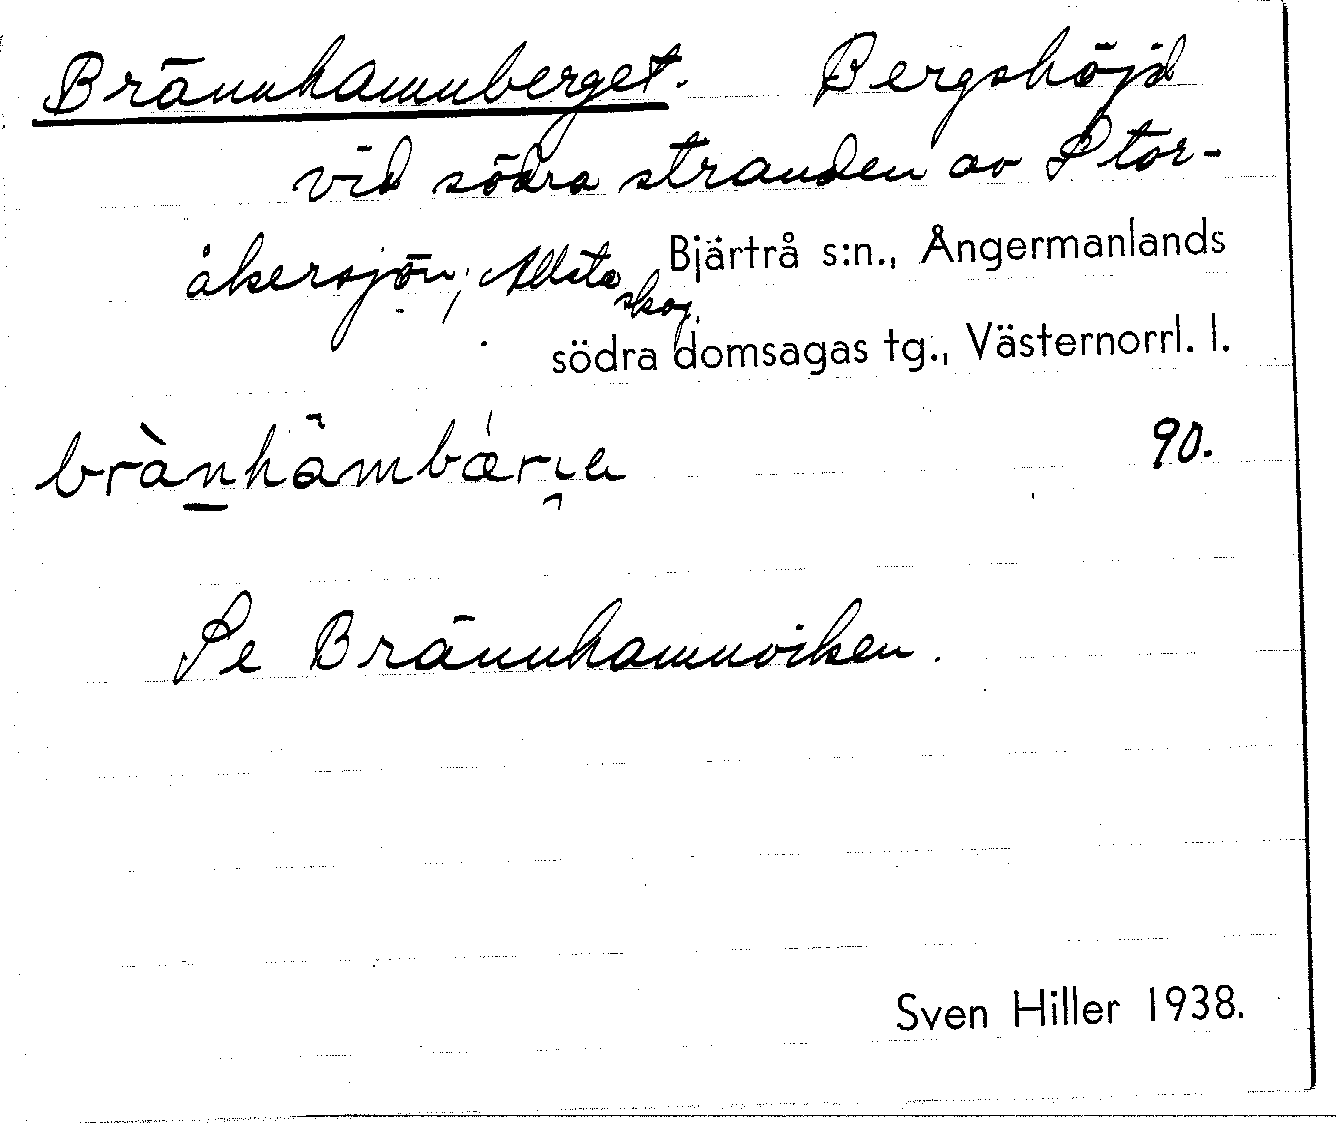 Brännhamnberget. Bergshöjd
vid södra stranden av Stor-
åkersjön; Allsta skog. Bjärtrå s:n., Ångermanlands
södra domsagas tg., Västernorrl. l.
90.
Se Brännhamnviken.
Sven Hiller 1938.